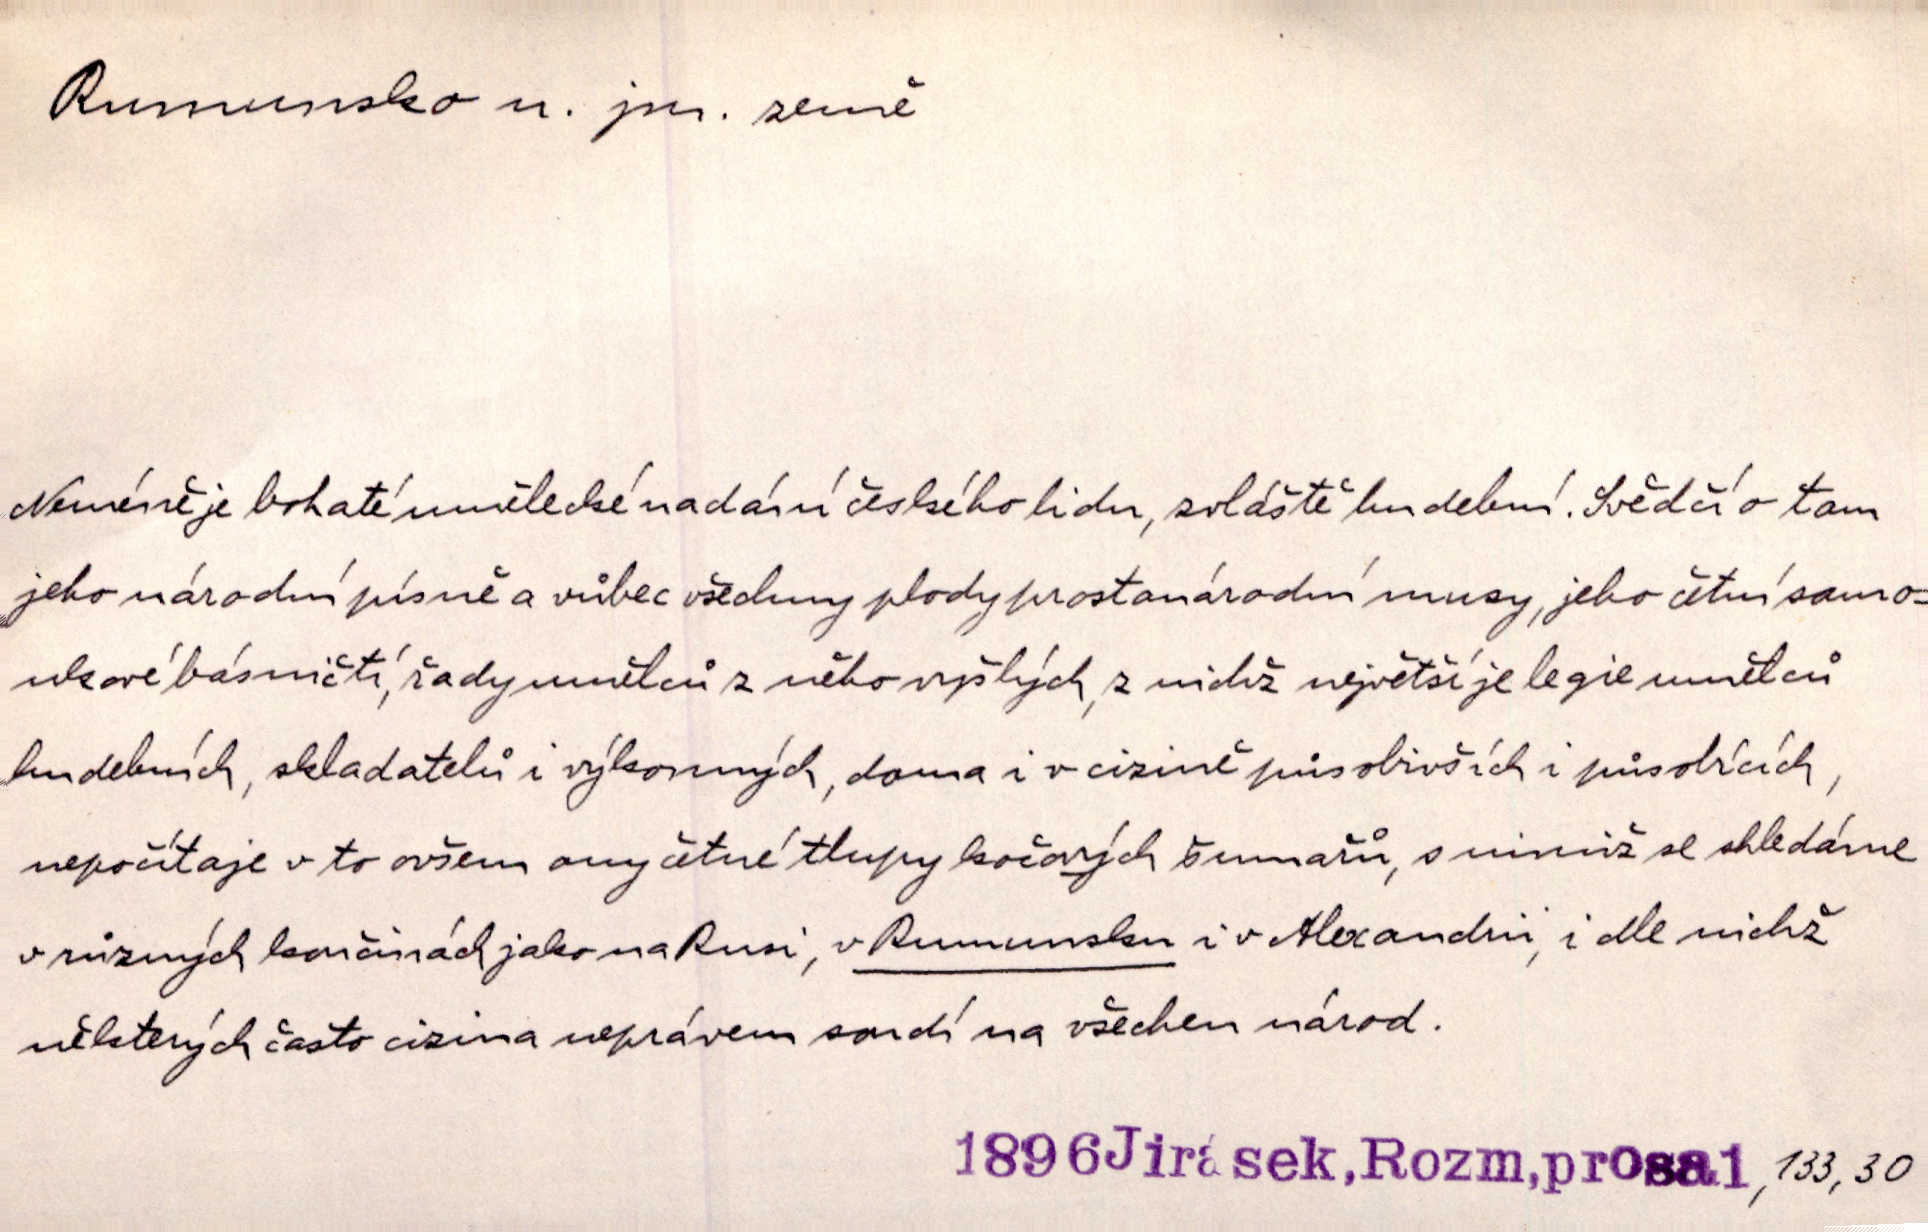 Rumunsko n. jm. země
Neméně je bohaté umělecké nadání českého lidu, zvláště hudební. Svědčí o tom
jeho národní písně a vůbec všechny plody prostanárodní musy, jeho četní samo=
ukové básničtí, řady umělců z něho vyšlých, z nichž největší je legie umělců
hudebních, skladatelů i výkonných, doma i v cizině působivších i působících,
nepočítaje v to ovšem ony četné tlupy kočových šumařů, s nimiž se shledáme
v různých končinách jako na Rusi, v Rumunsku i v Alexandrii, i dle nichž
některých často cizina neprávem soudí na všechen národ.
1896 Jirásek, Rozm, prosa 1, 133, 30